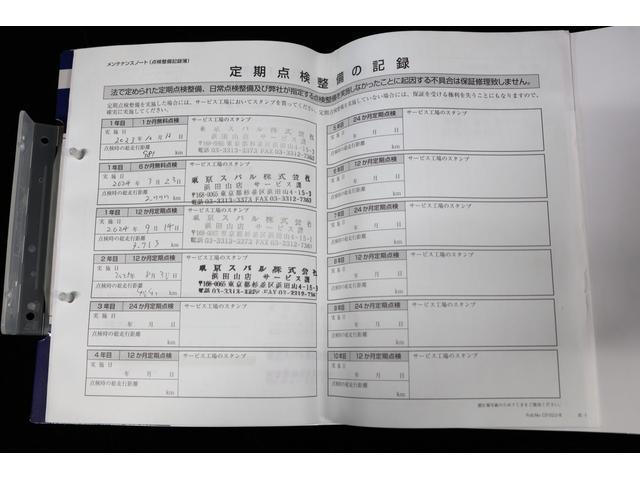 メンテナンスノート（点検整備記録簿）
定期点検整備の記録
法で定められた定期点検整備、日常点検整備及び弊社が指定する点検整備を実施しなかったことに起因する不具合は保証修理致しません。
定期点検整備を実施した場合には、サービス工場においてスタンプを貰ってください。定期点検整備を実施していない場合には、保証を受ける権利を失うことにもなりますので、
確実に実施してください。
1年目 1か月無料点検
サービス工場のスタンプ
実施日
2023年10月12日
東京スバル株式会社
浜田山店 サービス課
〒168-0065 東京都杉並区浜田山4-15-3
電話 03-3313-3373 FAX 03-3312-7363
点検時の総走行距離
981 km
1年目 6か月無料点検
実施日
2024年3月23日
東京スバル株式会社
浜田山店 サービス課
〒168-0065 東京都杉並区浜田山4-15-3
電話 03-3313-3373 FAX 03-3312-7363
点検時の総走行距離
km
1年目 12か月定期点検
サービス工場のスタンプ
実施日
2024年9月14日
東京スバル株式会社
浜田山店 サービス課
〒168-0065 東京都杉並区浜田山4-15-3
電話 03-3313-3373 FAX 03-3312-7363
点検時の総走行距離
3,713 km
2年目 12か月定期点検
サービス工場のスタンプ
実施日
年8月31日
東京スバル株式会社
浜田山店 サービス課
〒168-0065 東京都杉並区浜田山4-15-3
電話 03-3313-3373 FAX 03-3312-7363
点検時の総走行距離
km
3年目 24か月定期点検
サービス工場のスタンプ
実施日
年 月 日
点検時の総走行距離
km
4年目 12か月定期点検
サービス工場のスタンプ
実施日
年 月 日
点検時の総走行距離
km
5年目 24か月定期点検
サービス工場のスタンプ
実施日
年 月 日
点検時の総走行距離
km
12か月定期点検
サービス工場のスタンプ
実施日
年 月 日
点検時の総走行距離
km
7年目 24か月定期点検
サービス工場のスタンプ
実施日
年 月 日
点検時の総走行距離
km
8年目 12か月定期点検
サービス工場のスタンプ
実施日
年 月 日
点検時の総走行距離
km
9年目 24か月定期点検
サービス工場のスタンプ
実施日
年 月 日
点検時の総走行距離
km
10年目 12か月定期点検
サービス工場のスタンプ
実施日
年 月 日
点検時の総走行距離
km